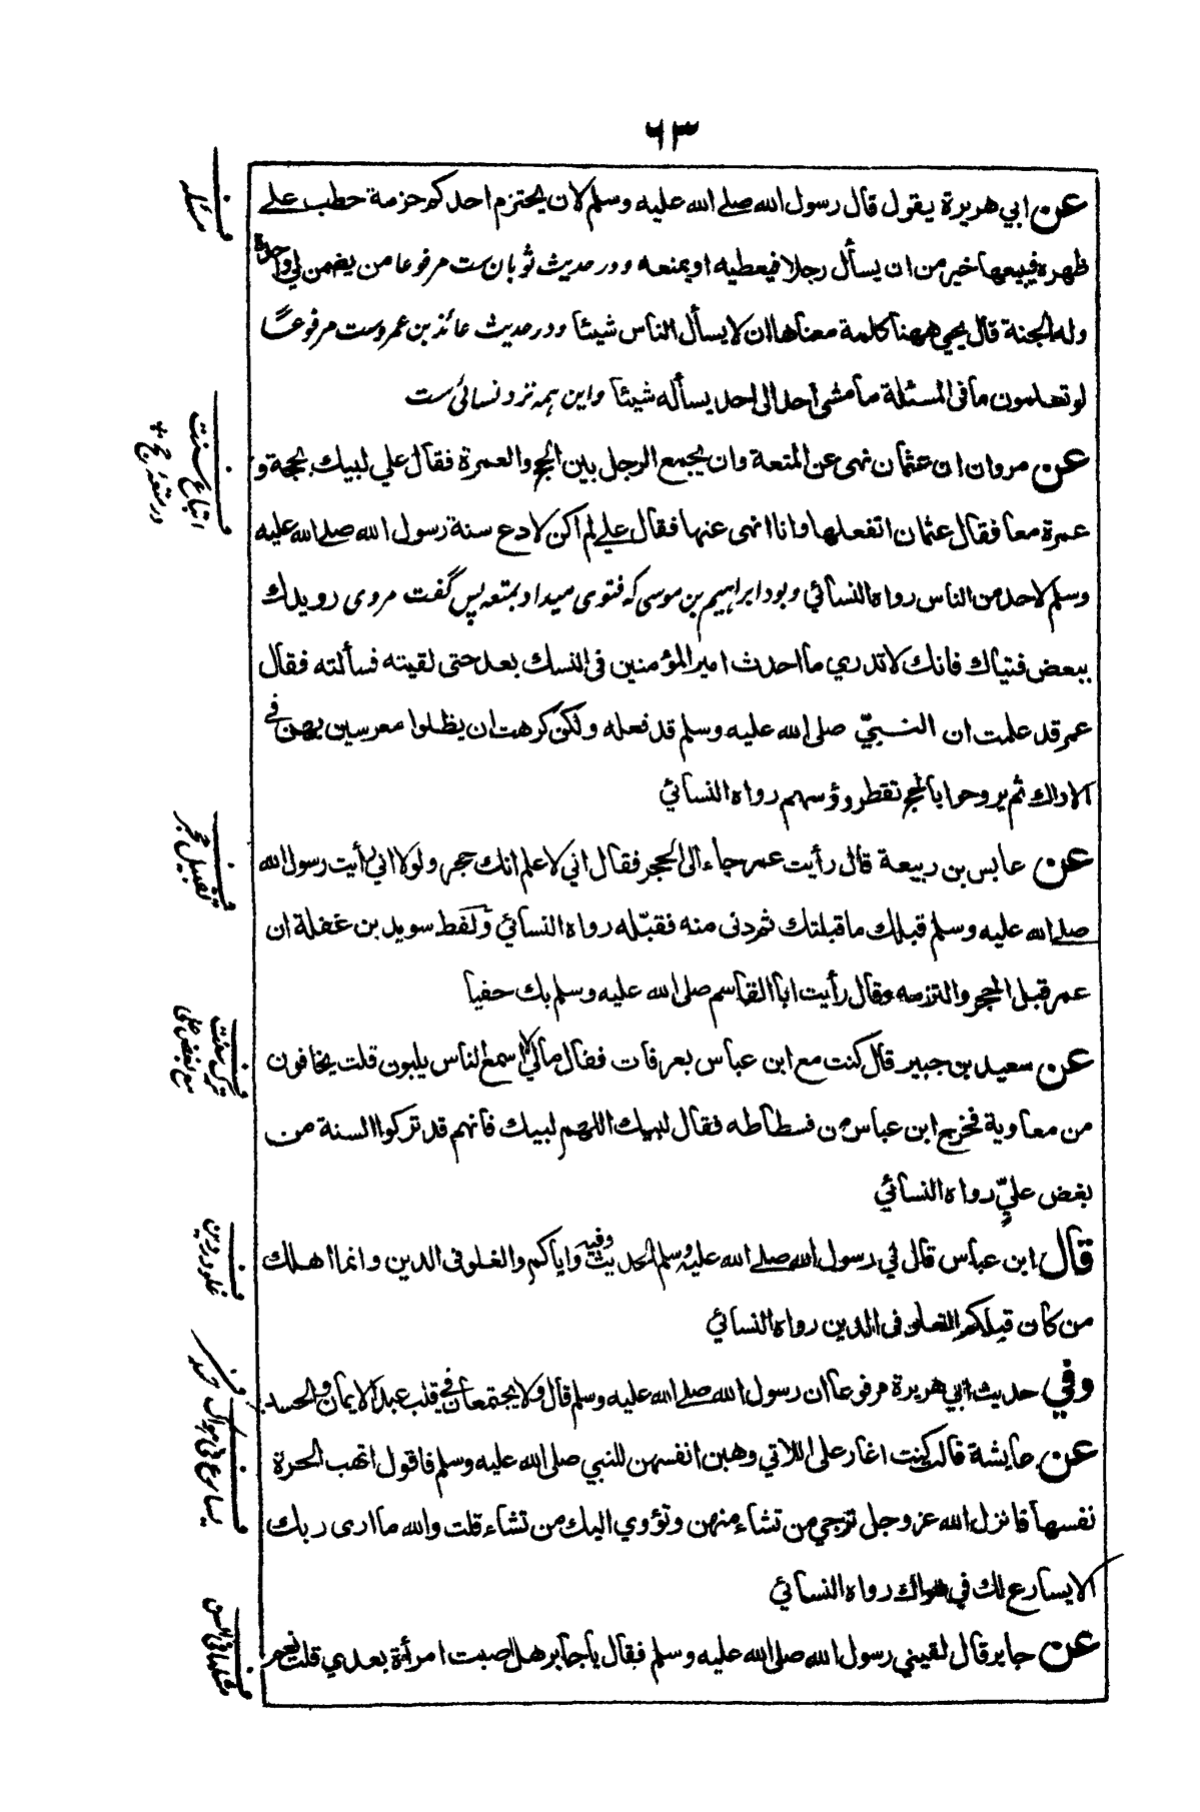 ٦٣
عن ابي هريرة يقول قال رسول الله صلے الله عليه وسلم لان يحتزم احدكم حزمة حطب علے
ظهره فيبيعها خير من ان يسأل رجلا فيعطيه او يمنعه و در حديث ثوبان ست مرفوعا من يضمن لي واحدة
وله الجنة قال يحيي ههنا كلمة معناها ان لا يسأل الناس شيئا و در حديث عائذ بن عمرو ست مرفوعًا
لو تعلمون ما فى المسئلة ما مشى احد الى احد يسأله شيئا و اين همه نزد نسائي ست
عن مروان ان عثمان نهى عن المتعة وان يجمع الرجل بين الحج والعمرة فقال علي لبيك بحجة و
عمرة معا فقال عثمان اتفعلها وانا انهى عنها فقال علے لم اكن لادع سنة رسول الله صلے الله عليه
وسلم لاحد من الناس رواه النسائي و بود ابراهيم بن موسى كه فتوى ميداد بمتعه پس گفت مردى رويدك
ببعض فتياك فانك لا تدري ما احدث امير المؤمنين فى النسك بعد حتى لقيته فسألته فقال
عمر قد علمت ان النبيّ صلى الله عليه وسلم قد فعله ولكن كرهت ان يظلوا معرسين بهن في
الاراك ثم يروحوا بالحج تقطر رؤسهم رواه النسائي
عن عابس بن ربيعة قال رأيت عمر جاء الى الحجر فقال اني لاعلم انك حجر ولولا اني رأيت رسول الله
صلے الله عليه وسلم قبلك ما قبلتك ثم دنى منه فقبّله رواه النسائي ولفظ سويد بن غفلة ان
عمر قبل الحجر والتزمه وقال رأيت ابا القاسم صلى الله عليه وسلم بك حفيا
عن سعيد بن جبير قال كنت مع ابن عباس بعرفات فقال مالي لا اسمع الناس يلبون قلت يخافون
من معاوية فخرج ابن عباس من فسطاطه فقال لبيك اللهم لبيك فانهم قد تركوا السنة من
بغض عليٍّ رواه النسائي
قال ابن عباس قال لي رسول الله صلے الله عليه وسلم الحديث وفيه واياكم والغلو فى الدين وانما اهلك
من كان قبلكم الغلو فى الدين رواه النسائي
وفي حديث ابي هريرة مرفوعا ان رسول الله صلے الله عليه وسلم قال ولا يجتمعان في قلب عبد الايمان والحسد
عن عايشة قالت كنت اغار على اللاتي وهبن انفسهن للنبي صلى الله عليه وسلم فاقول اتهب الحرة
نفسها فانزل الله عز وجل ترجي من تشاء منهن وتؤوي اليك من تشاء قلت والله ما ارى ربك
الا يسارع لك في هواك رواه النسائي
عن جابر قال لقيني رسول الله صلى الله عليه وسلم فقال يا جابر هل اصبت امرأة بعدي قلت نعم
ف اتباع سنت
در متعۂ حج
ف تقبيل حجر
ف ترك سنت
مع بغض علي
ف غلو در دين
ف حسد
ف يسارع في هواك